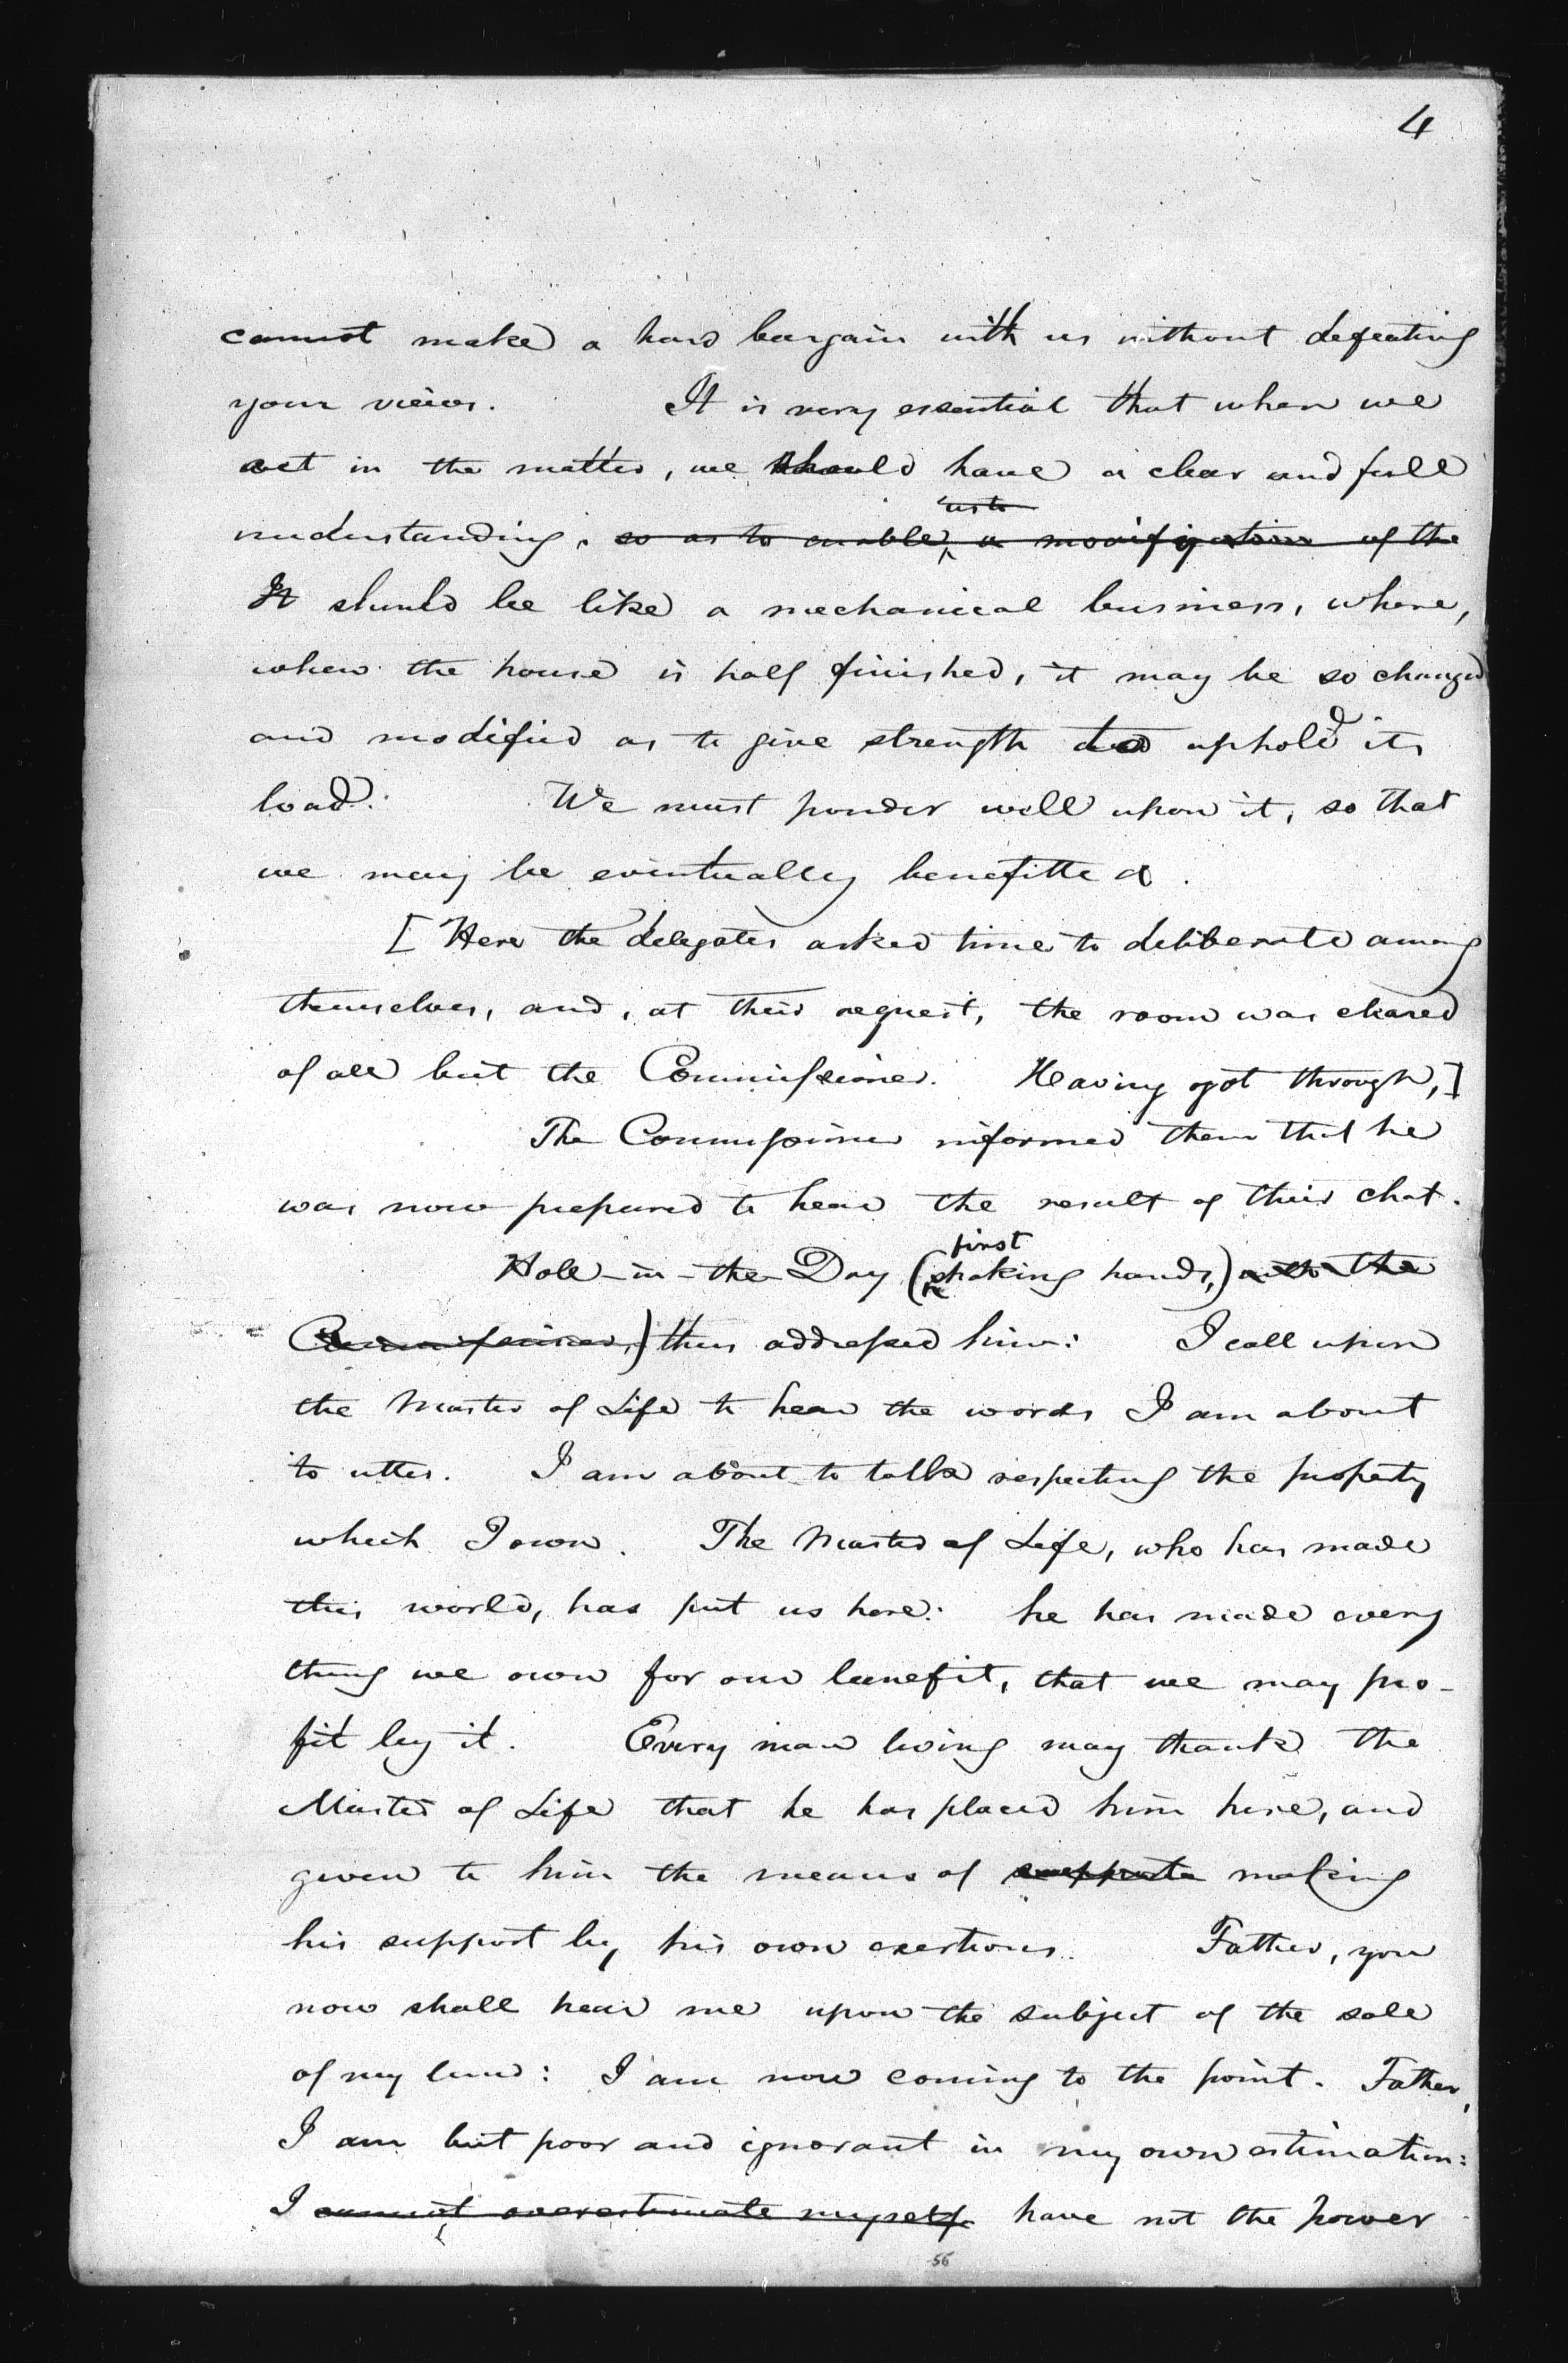 4
cannot make a hard bargain with us without defeating
your views. It is very essential that when we
act in the matter, we should have a clear and full
us to
understanding. so as to enable a modification of the
It should be like a mechanical business, where,
when the house is half finished, it may be so changed
and modified as to give strength to uphold its
load. We must ponder well upon it, so that
we may be eventually benefitted.
[Here the delegates asked time to deliberate among
themselves, and, at their request, the room was cleared
of all but the Commissioner. Having got through,]
The Commissioner informed them that he
was now prepared to hear the result of their chat.
first
Hole-in-the-Day (shaking hands,) with the
Commissioner,) thus addressed him: I call upon
the Master of Life to hear the words I am about
to utter. I am about to talk respecting the property
which I own. The Master of Life, who has made
this world, has put us here: he has made every
thing we own for our benefit, that we may pro-
fit by it. Every man living may thank the
Master of Life that he has placed him here, and
given to him the means of support making
his support by his own exertions. Father, you
now shall hear me upon the subject of the sale
of my land: I am now coming to the point. Father,
I am but poor and ignorant in my own estimation:
I cannot overestimate myself have not the power
56